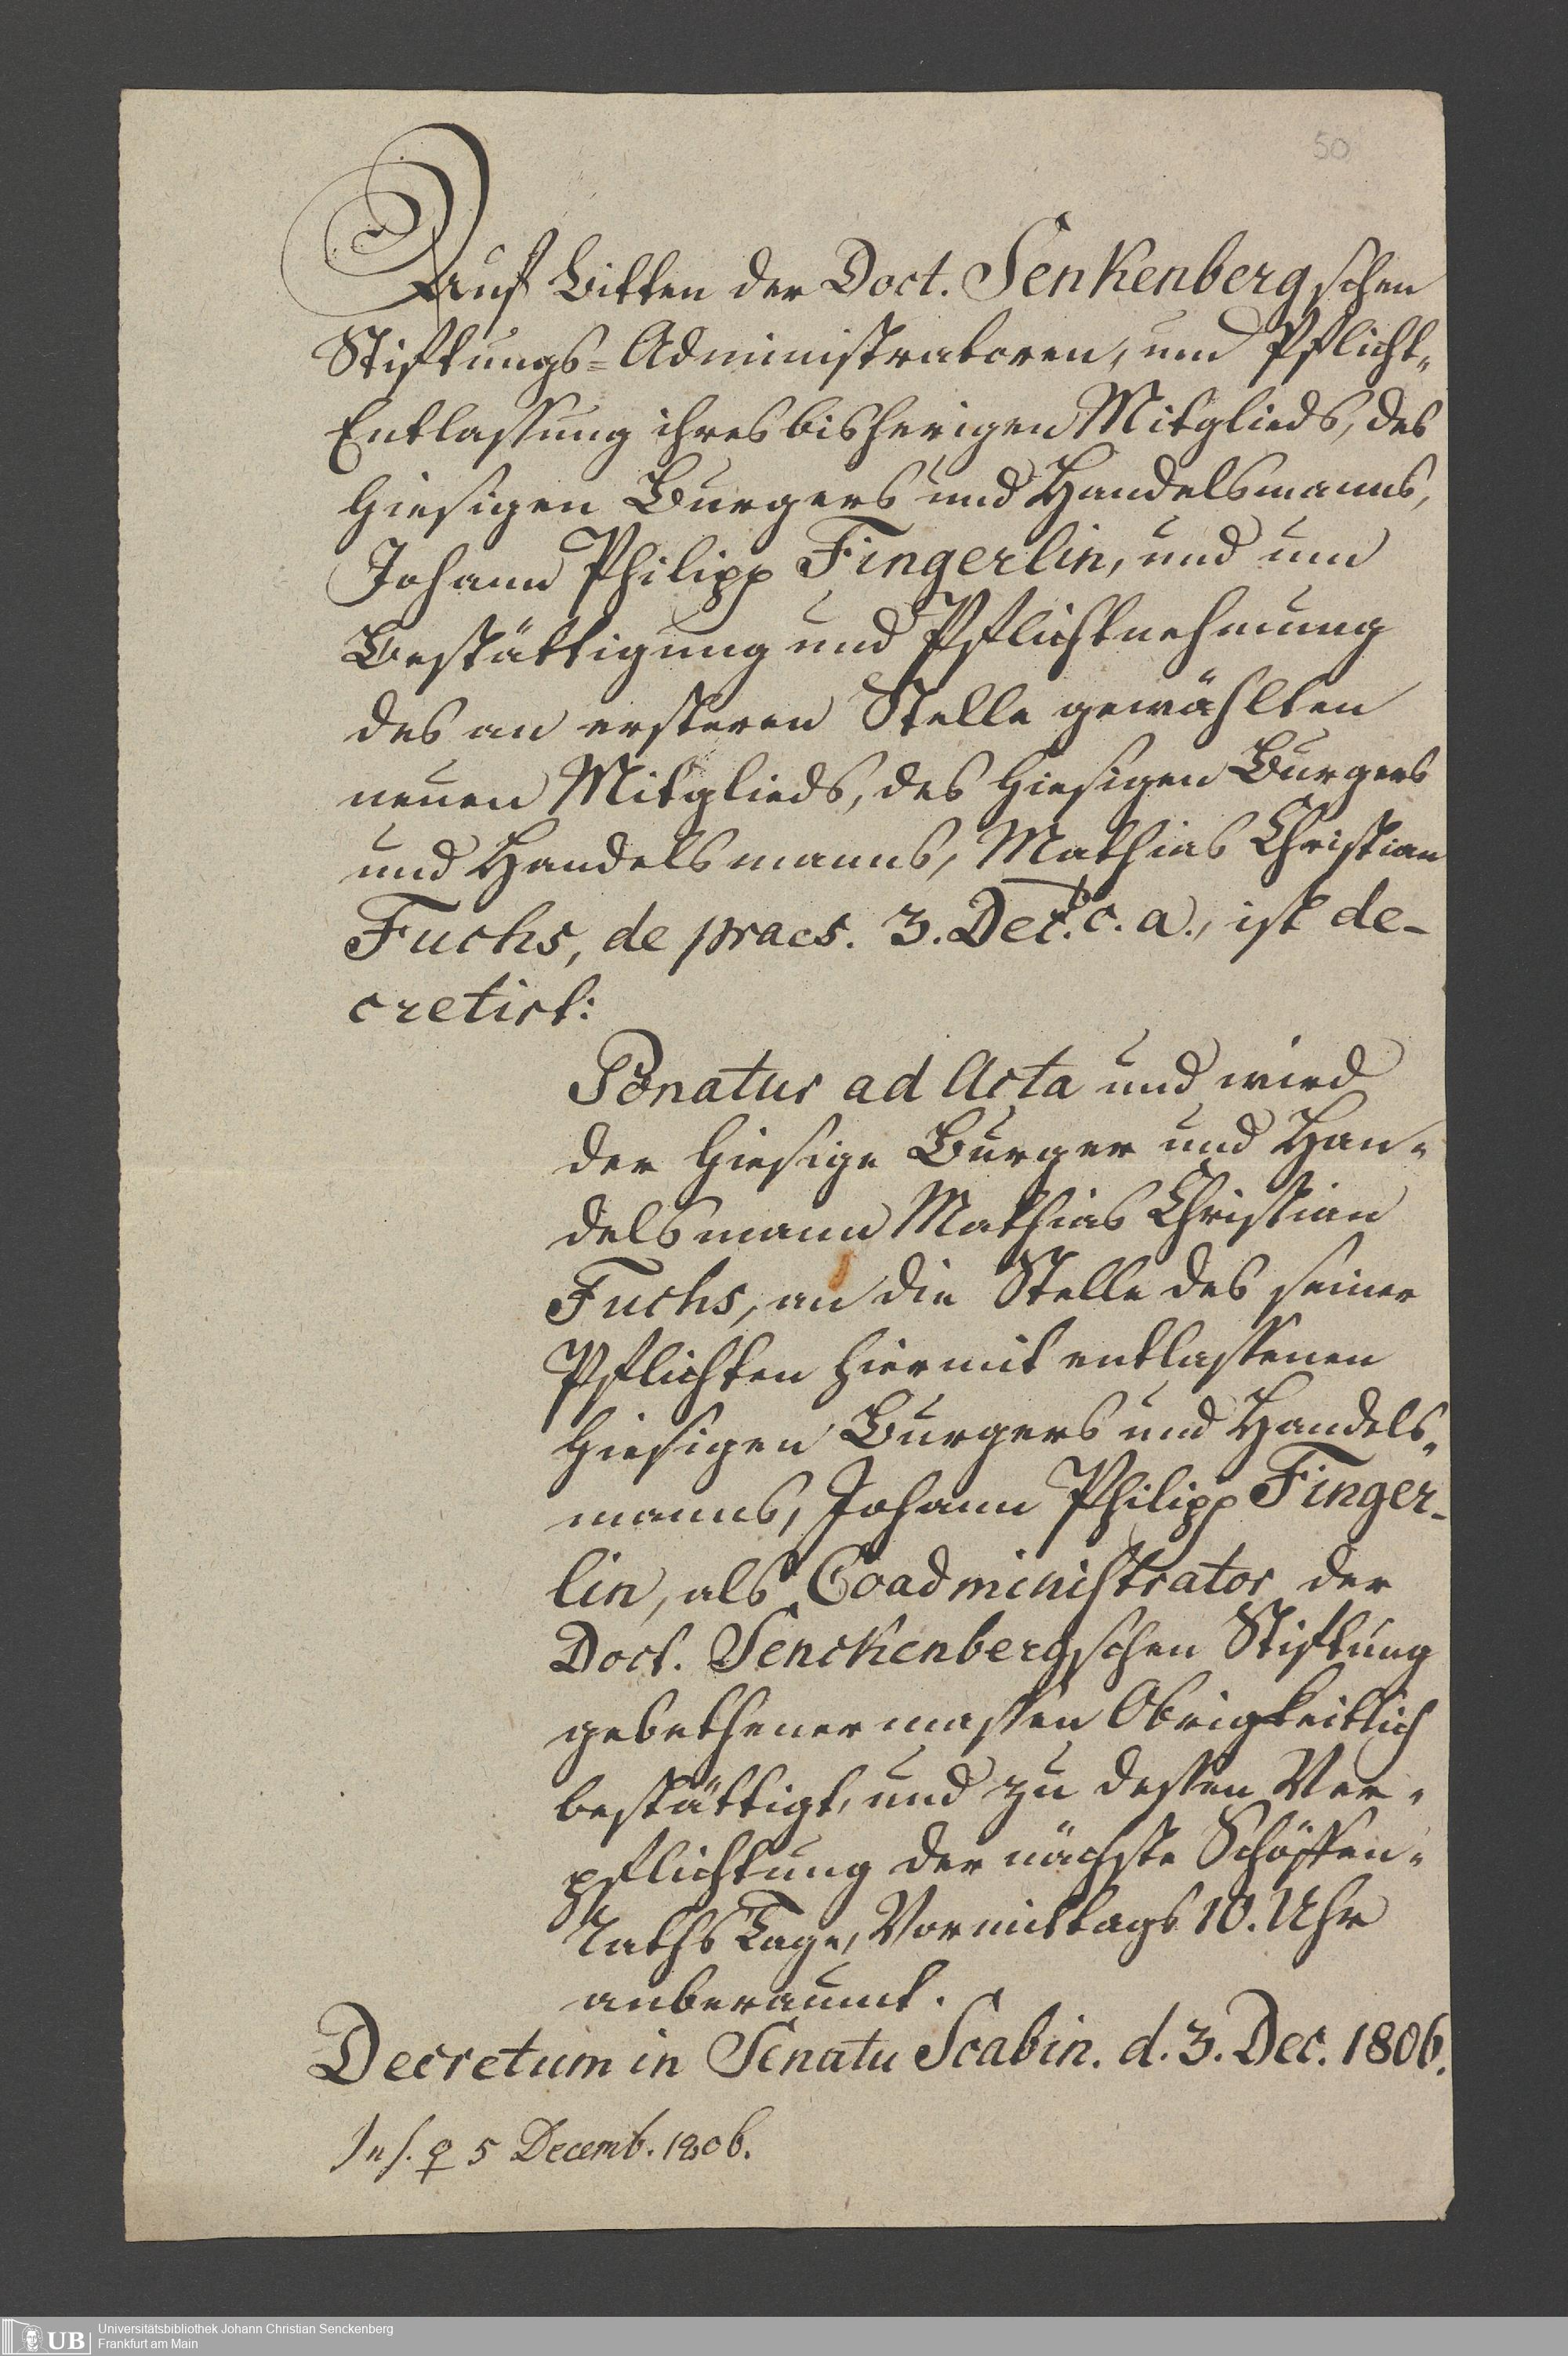 50
Auf Bitten der Doct. Senkenbergschen
Stiftungs=Administratoren, um Pflicht„
Entlassung ihres bisherigen Mitglieds, des
hiesigen Burgers und Handelsmanns,
Johann Philipp Fingerlin, und um
Bestättigung und Pflichtnehmung
des an ersteren Stelle gewählten
neuen Mitglieds, des hiesigen Burgers
und Handelsmanns, Mathias Christian
Fuchs, de praes. 3. Dec. c. a., ist de-
cretirt:
Ponatur ad Acta und wird
der hiesige Burger und Han„
delsmann Mathias Christian
Fuchs, an die Stelle des seiner
Pflichten hiermit entlassenen
hiesigen Burgers und Handels„
manns, Johann Philipp Finger-
lin, als Coadministrator der
Doct. Senckenbergschen Stiftung
gebethener massen Obrigkeitlich
bestättigt, und zu dessen Ver„
pflichtung der nächste Schöffen„
Raths Tage, Vormittags 10. Uhr
anberaumt.
Decretum in Senatu Scabin. d. 3. Dec. 1806.
Ins. ♀ 5 Decemb. 1806.
UB
Universitätsbibliothek Johann Christian Senckenberg
Frankfurt am Main